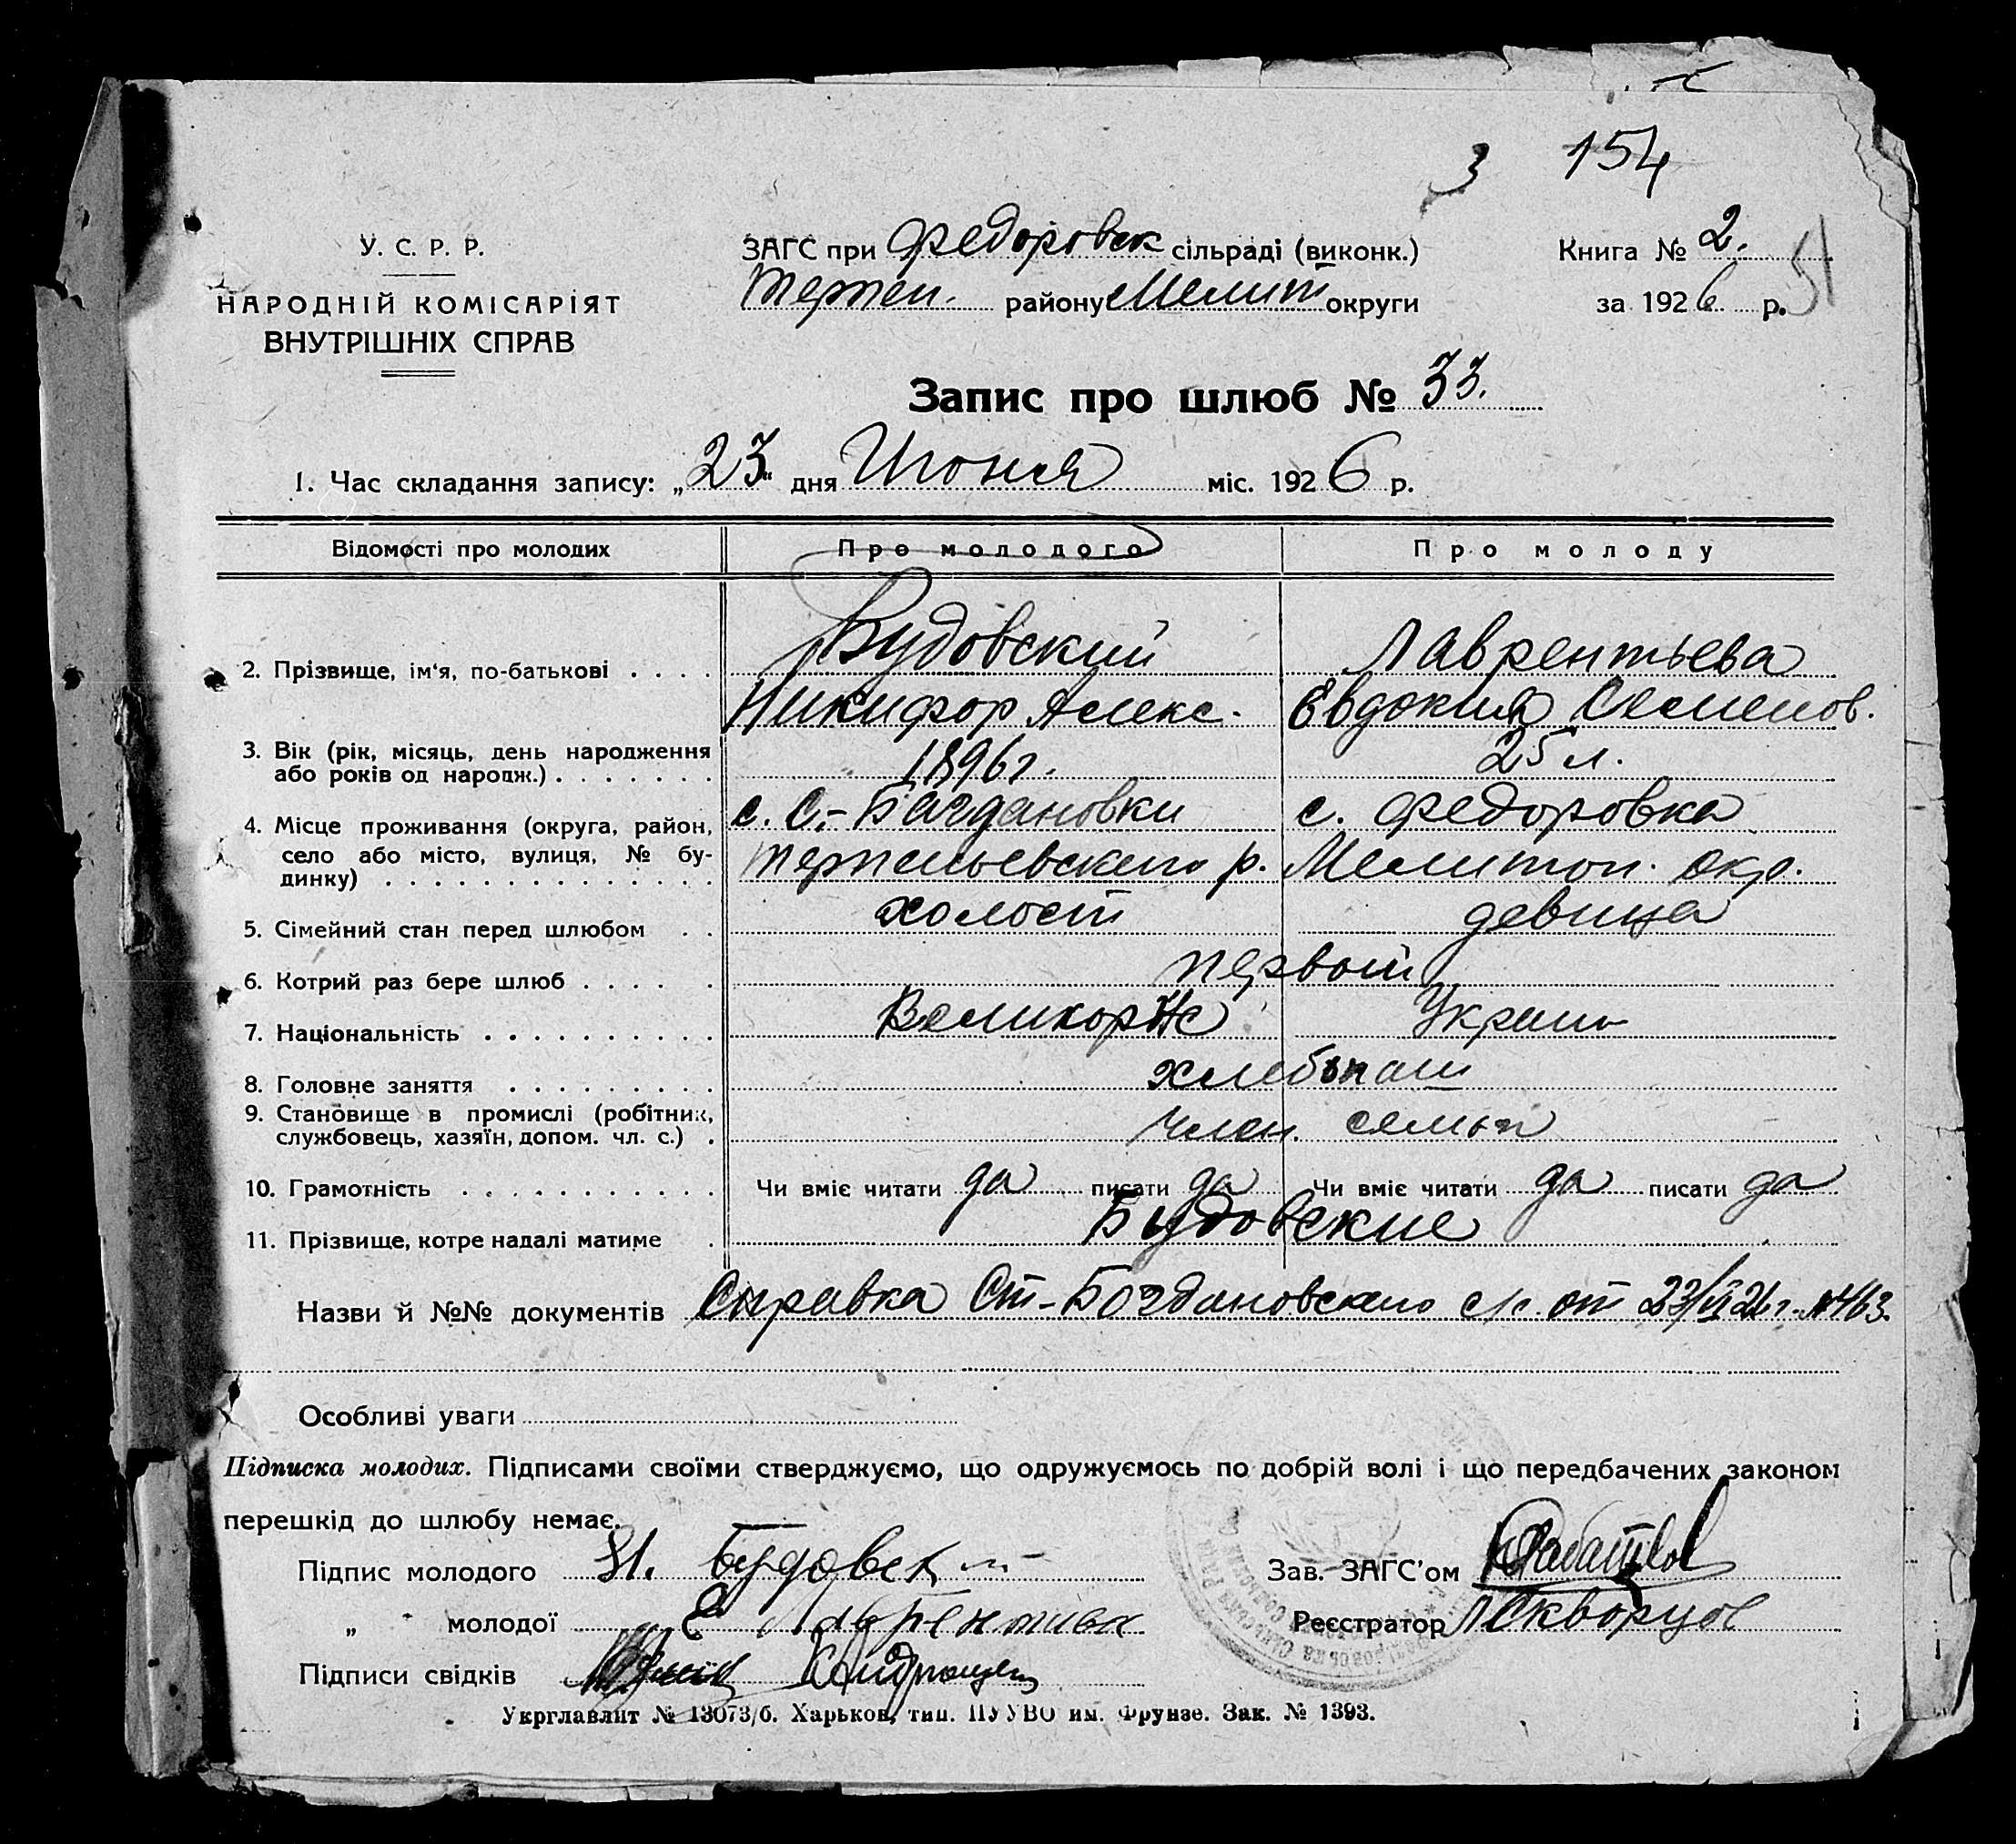 3 154
У. С. Р. Р.
НАРОДНІЙ КОМІСАРІЯТ
ВНУТРІШНІХ СПРАВ
ЗАГС при Федоровск сільраді (виконк.)
Терпен. району Мелит округи
Книга № 2.
за 1926 р.
51
Запис про шлюб № 33.
1. Час складання запису: „23" дня Июня міс. 1926 р.
Відомості про молодих Про молодого Про молоду
2. Прізвище, ім'я, по-батькові . . . . Будовский Лаврентьева
Никифор Алекс. Евдокия Семенов.
3. Вік (рік, місяць, день народження
або років од народж.) . . . . . . . 1896 г. 25 л.
4. Місце проживання (округа, район,
село або місто, вулиця, № бу-
динку) . . . . . . . . . . . . . .
с. С.-Багдановки с. Федоровка
Терпеньевского р. Мелитоп. окр.
5. Сімейний стан перед шлюбом . . холост девица
6. Котрий раз бере шлюб . . . . . первый
7. Національність . . . . . . . . . . Великор Украин
8. Головне заняття . . . . . . . . . хлебопаш
9. Становище в промислі (робітник,
службовець, хазяїн, допом. чл. с.) . член. семьи
10. Грамотність . . . . . . . . . . . Чи вміє читати да писати да Чи вміє читати да писати да
11. Прізвище, котре надалі матиме . Будовские
Назви й №№ документів Справка Ст-Богдановского с/с. от 23/VI 26 г. № 463.
Особливі уваги
Підписка молодих. Підписами своїми стверджуємо, що одружуємось по добрій волі і що передбачених законом
перешкід до шлюбу немає.
Підпис молодого Н. Будовск
Зав. ЗАГС'ом
„ молодої Е Лаврентива
Реєстратор Скворцов
Підписи свідків
Укрглавлит № 13073/б. Харьков, тип. ПУУВО им. Фрунзе. Зак. № 1393.